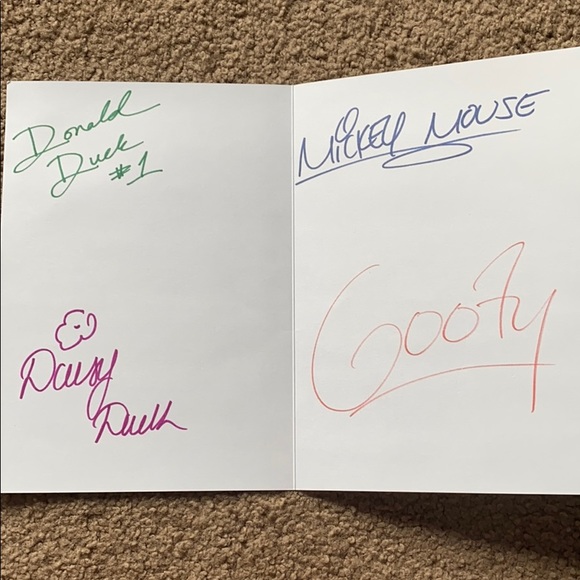 Donald
Duck
#1
Daisy
Duck
MICKEY MOUSE
Goofy